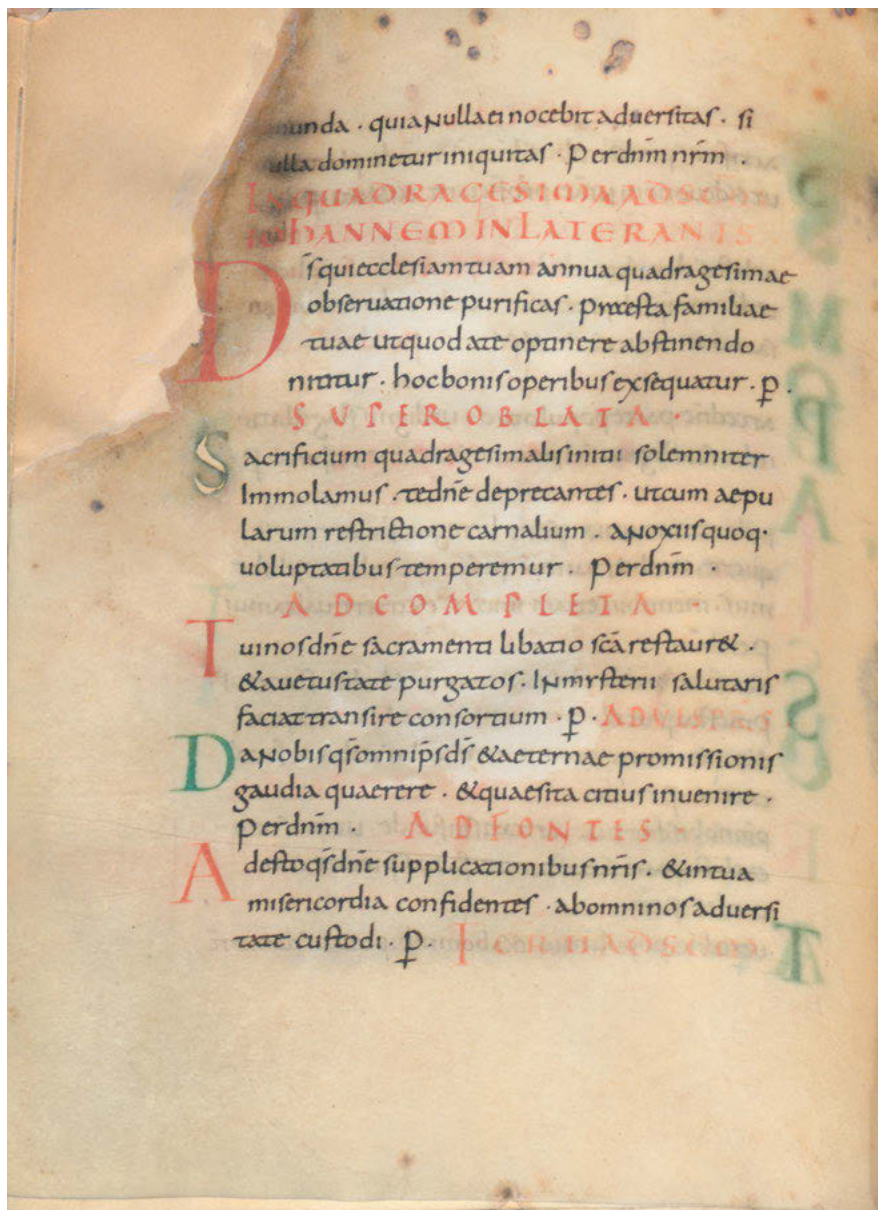 unda · quia nulla ei nocebit adversitas · si
ulla dominetur iniquitas · Per dnm̄ nrm̄ ·
IN QUADRAGESIMA AD SC̄M
IOHANNEM IN LATERANIS
Ds̄ qui ecclesiam tuam annua quadragesimae
observatione purificas · praesta familiae
tuae ut quod a te optinere abstinendo
nititur · hoc bonis operibus exsequatur · P̱ ·
SUPER OBLATA ·
Sacrificium quadragesimalis initii solemniter
Immolamus · te dn̄e deprecantes · ut cum aepu
larum restrictione carnalium · a noxiis quoq·
voluptatibus temperemur · Per dnm̄ ·
AD COMPLETA ·
Tui nos dn̄e sacramenti libatio sc̄a restaur& ·
& a vetustate purgatos · In mysterii salutaris
faciat transire consortium · P̱ · AD VESPEROS
Da nobis qs̄ omnip̄s ds̄ & aeternae promissionis
gaudia quaerere · & quaesita citius invenire ·
Per dnm̄ · AD FONTES ·
Adesto qs̄ dn̄e supplicationibus nr̄is · & in tua
misericordia confidentes · ab omni nos adversi
tate custodi · P̱ ·